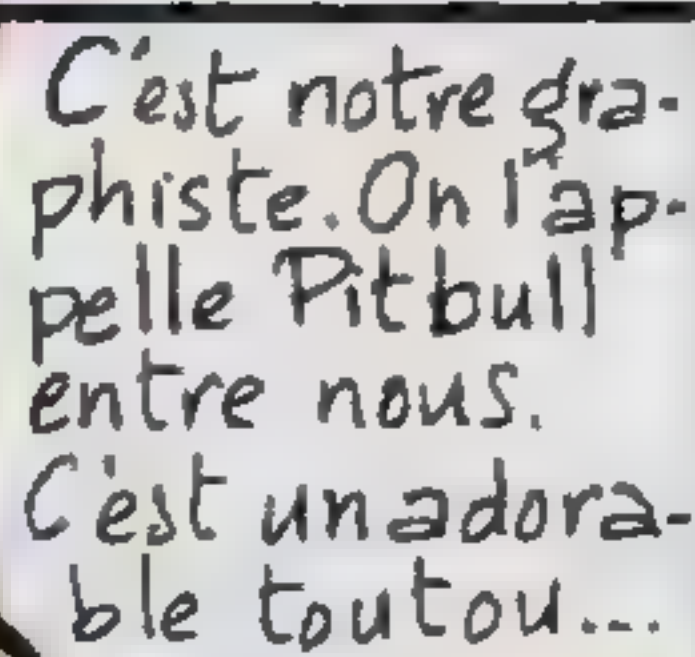 C'est notre gra-
phiste. On l'ap-
pelle Pitbull
entre nous.
C'est un adora-
ble toutou...